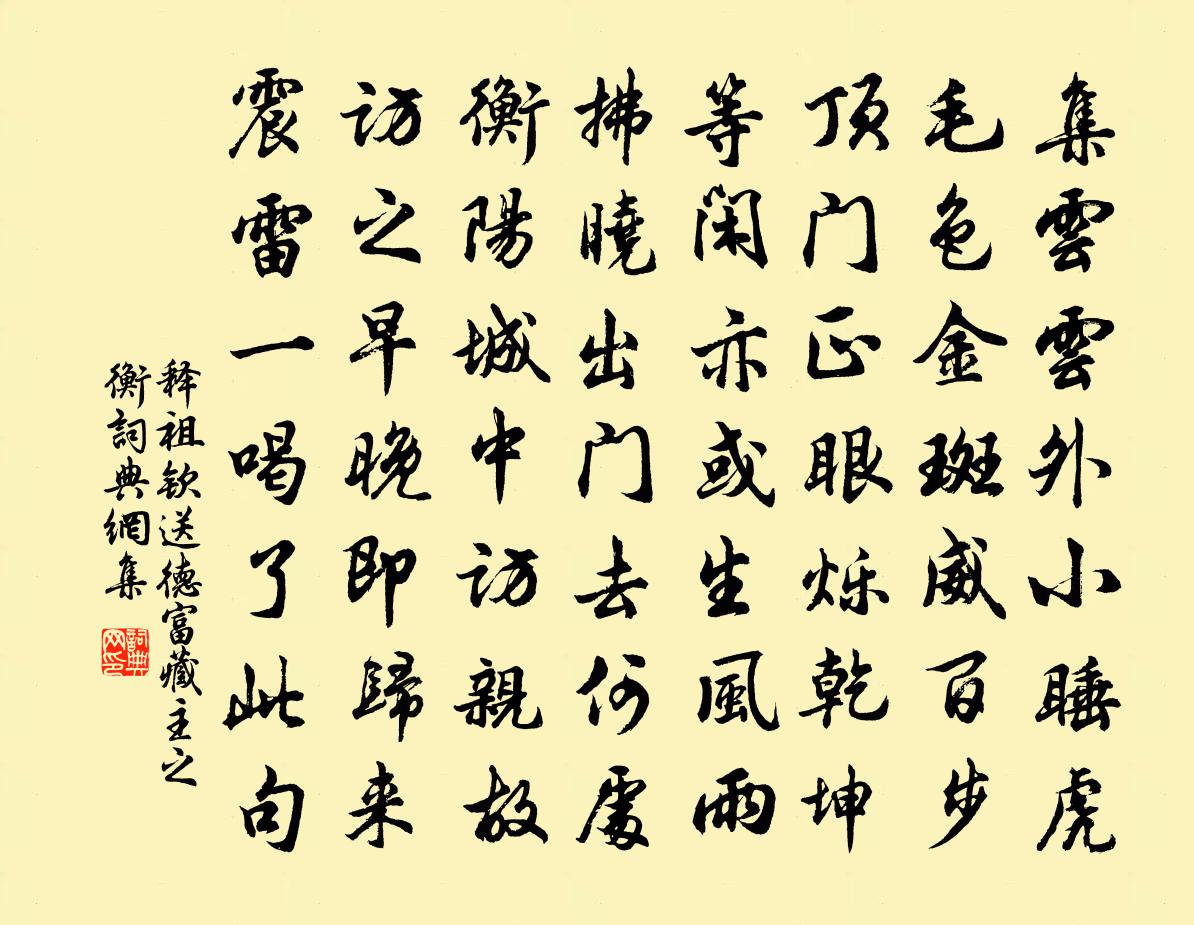 集雲雲外小睡虎
毛色金斑威百步
顶门正眼烁乾坤
等閑亦或生風雨
拂曉出门去何處
衡陽城中访親故
访之早晚即歸来
震雷一喝了此句
释祖钦送德富藏主之
衡詞典網集
詞典网印